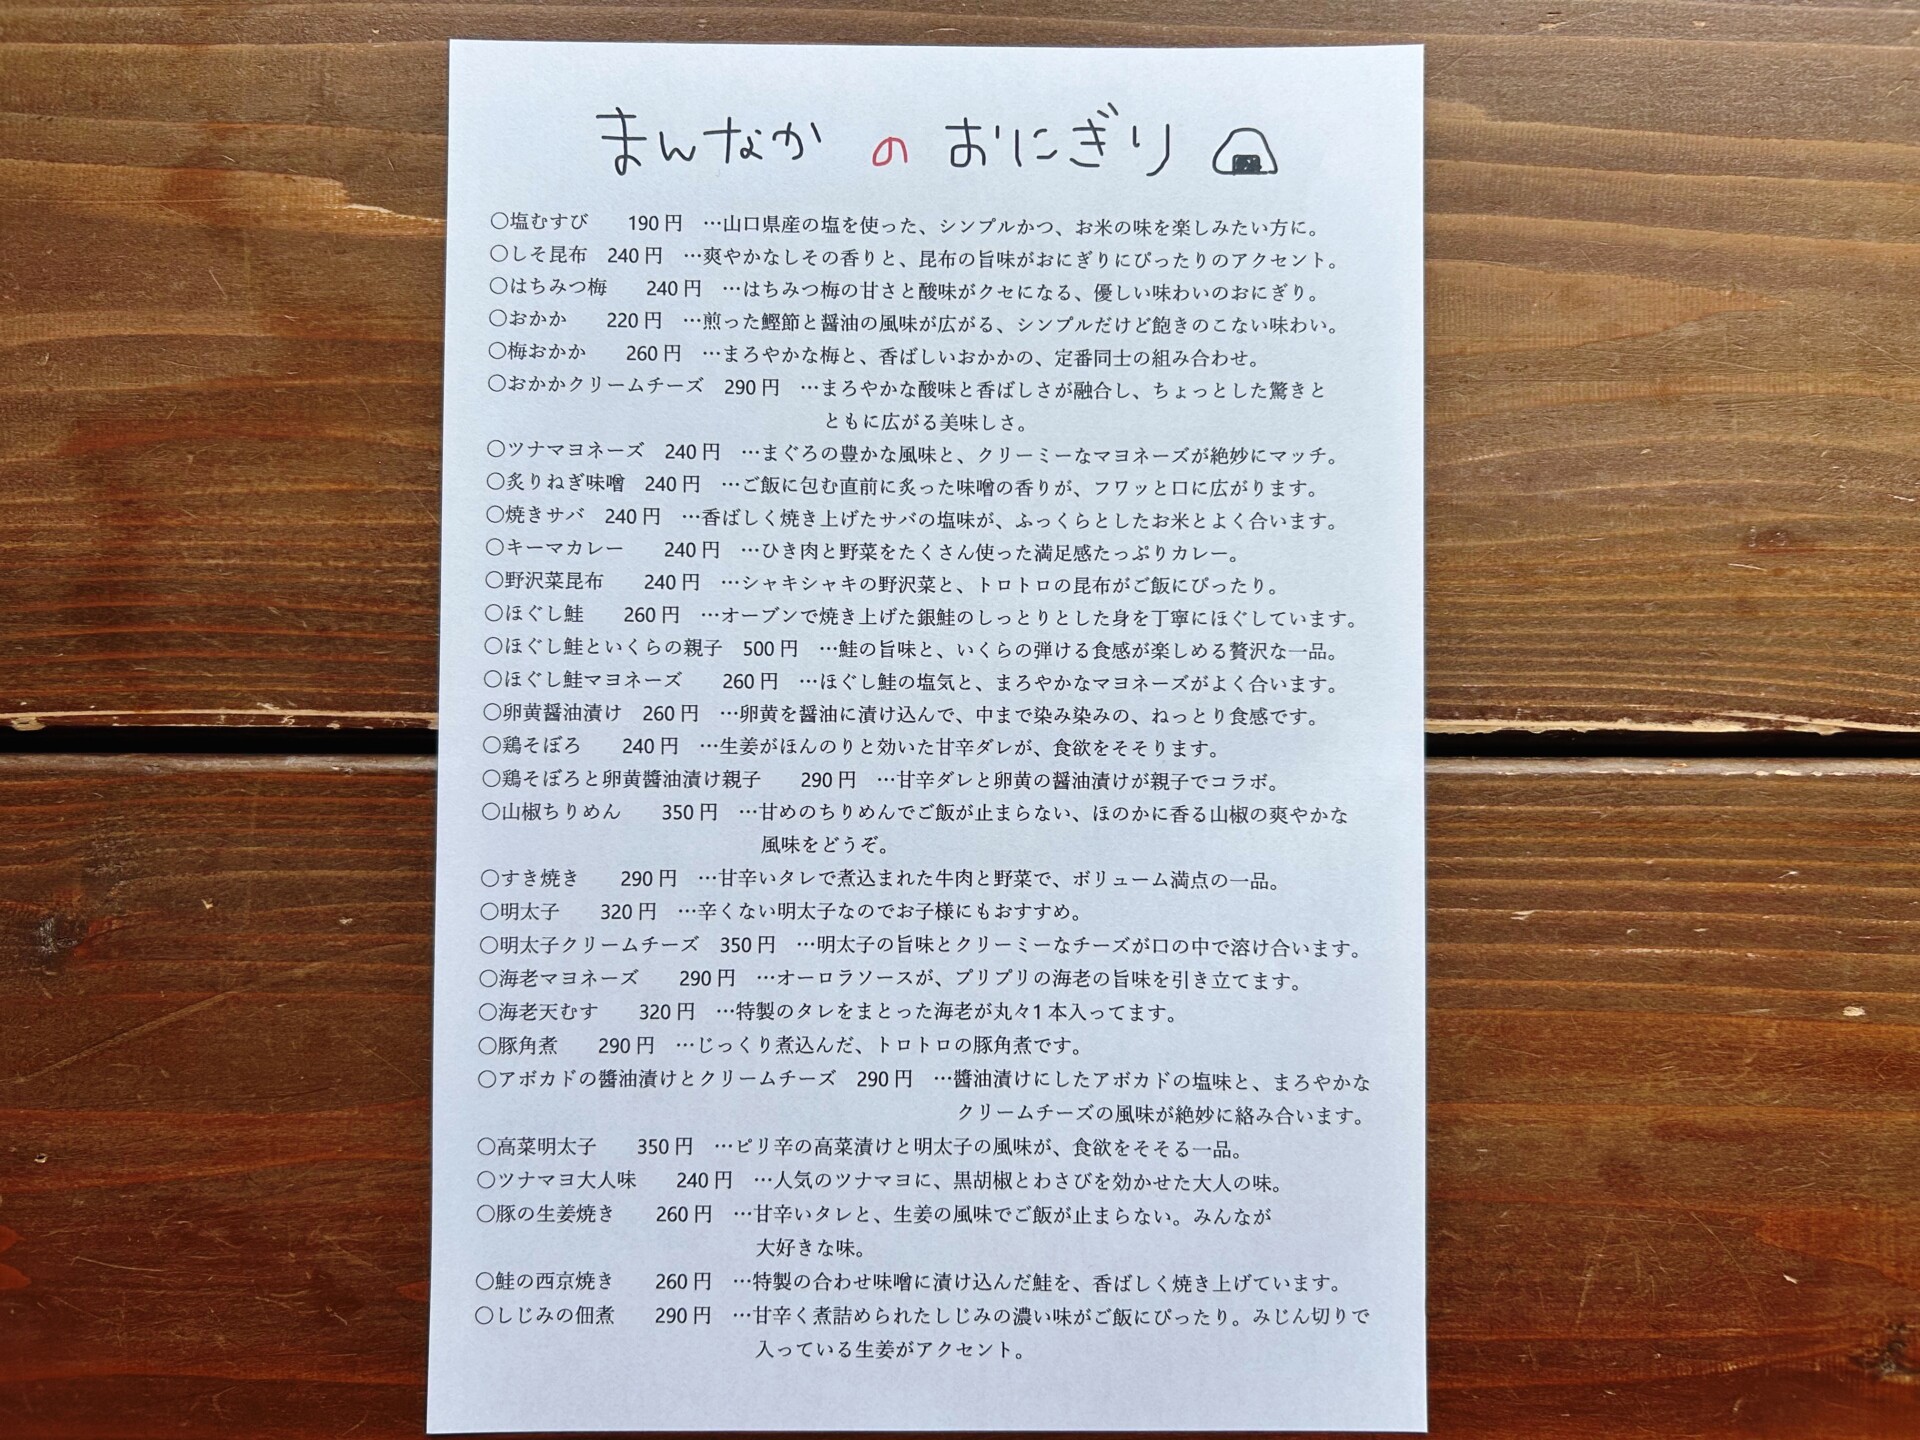 まんなか の おにぎり
○塩むすび　190円　…山口県産の塩を使った、シンプルかつ、お米の味を楽しみたい方に。
○しそ昆布　240円　…爽やかなしその香りと、昆布の旨味がおにぎりにぴったりのアクセント。
○はちみつ梅　240円　…はちみつ梅の甘さと酸味がクセになる、優しい味わいのおにぎり。
○おかか　220円　…煎った鰹節と醤油の風味が広がる、シンプルだけど飽きのこない味わい。
○梅おかか　260円　…まろやかな梅と、香ばしいおかかの、定番同士の組み合わせ。
○おかかクリームチーズ　290円　…まろやかな酸味と香ばしさが融合し、ちょっとした驚きと
ともに広がる美味しさ。
○ツナマヨネーズ　240円　…まぐろの豊かな風味と、クリーミーなマヨネーズが絶妙にマッチ。
○炙りねぎ味噌　240円　…ご飯に包む直前に炙った味噌の香りが、フワッと口に広がります。
○焼きサバ　240円　…香ばしく焼き上げたサバの塩味が、ふっくらとしたお米とよく合います。
○キーマカレー　240円　…ひき肉と野菜をたくさん使った満足感たっぷりカレー。
○野沢菜昆布　240円　…シャキシャキの野沢菜と、トロトロの昆布がご飯にぴったり。
○ほぐし鮭　260円　…オーブンで焼き上げた銀鮭のしっとりとした身を丁寧にほぐしています。
○ほぐし鮭といくらの親子　500円　…鮭の旨味と、いくらの弾ける食感が楽しめる贅沢な一品。
○ほぐし鮭マヨネーズ　260円　…ほぐし鮭の塩気と、まろやかなマヨネーズがよく合います。
○卵黄醤油漬け　260円　…卵黄を醤油に漬け込んで、中まで染み染みの、ねっとり食感です。
○鶏そぼろ　240円　…生姜がほんのりと効いた甘辛ダレが、食欲をそそります。
○鶏そぼろと卵黄醬油漬け親子　290円　…甘辛ダレと卵黄の醤油漬けが親子でコラボ。
○山椒ちりめん　350円　…甘めのちりめんでご飯が止まらない、ほのかに香る山椒の爽やかな
風味をどうぞ。
○すき焼き　290円　…甘辛いタレで煮込まれた牛肉と野菜で、ボリューム満点の一品。
○明太子　320円　…辛くない明太子なのでお子様にもおすすめ。
○明太子クリームチーズ　350円　…明太子の旨味とクリーミーなチーズが口の中で溶け合います。
○海老マヨネーズ　290円　…オーロラソースが、プリプリの海老の旨味を引き立てます。
○海老天むす　320円　…特製のタレをまとった海老が丸々1本入ってます。
○豚角煮　290円　…じっくり煮込んだ、トロトロの豚角煮です。
○アボカドの醬油漬けとクリームチーズ　290円　…醬油漬けにしたアボカドの塩味と、まろやかな
クリームチーズの風味が絶妙に絡み合います。
○高菜明太子　350円　…ピリ辛の高菜漬けと明太子の風味が、食欲をそそる一品。
○ツナマヨ大人味　240円　…人気のツナマヨに、黒胡椒とわさびを効かせた大人の味。
○豚の生姜焼き　260円　…甘辛いタレと、生姜の風味でご飯が止まらない。みんなが
大好きな味。
○鮭の西京焼き　260円　…特製の合わせ味噌に漬け込んだ鮭を、香ばしく焼き上げています。
○しじみの佃煮　290円　…甘辛く煮詰められたしじみの濃い味がご飯にぴったり。みじん切りで
入っている生姜がアクセント。